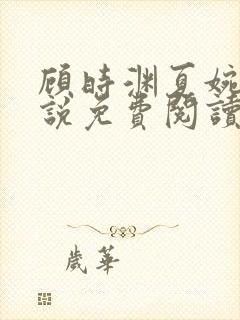 顾時渊夏婉
說免費閱讀
歲華